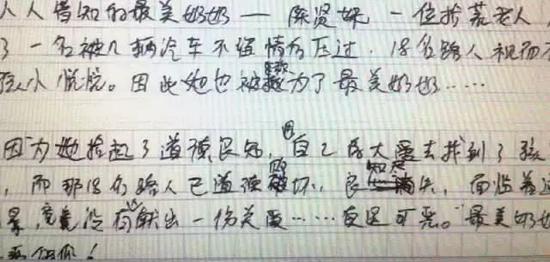 人人皆知的最美奶奶——陈贤妹 一位拾荒老人
了一名被几辆汽车不留情为压过，18名路人视而
孩小悦悦。因此她也被称为了最美奶奶……
因为她拾起了道德良知，用自己的大爱去找到了孩
，而那18名路人已道德败坏，良知消失，面临着这
景，竟没有献出一份关爱……真是可恶。"最美奶奶